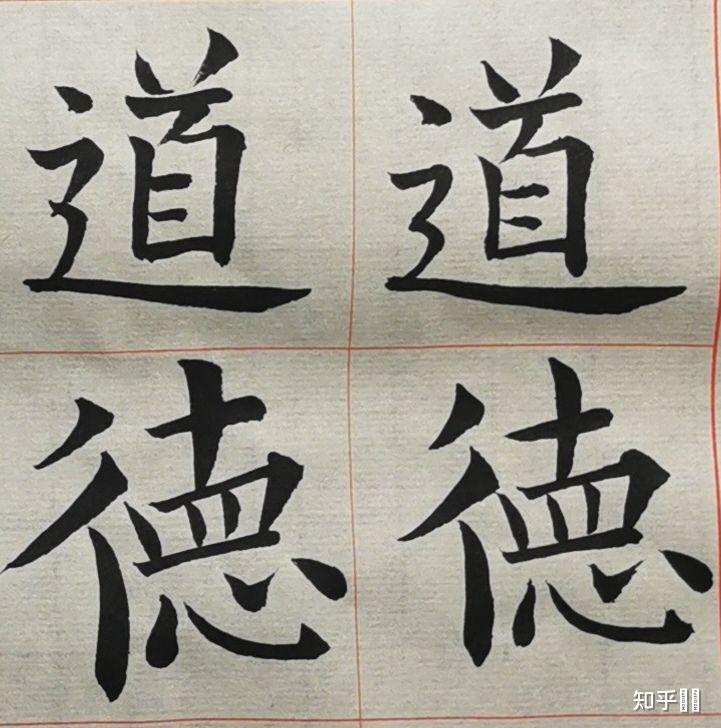 道道
德德
知乎